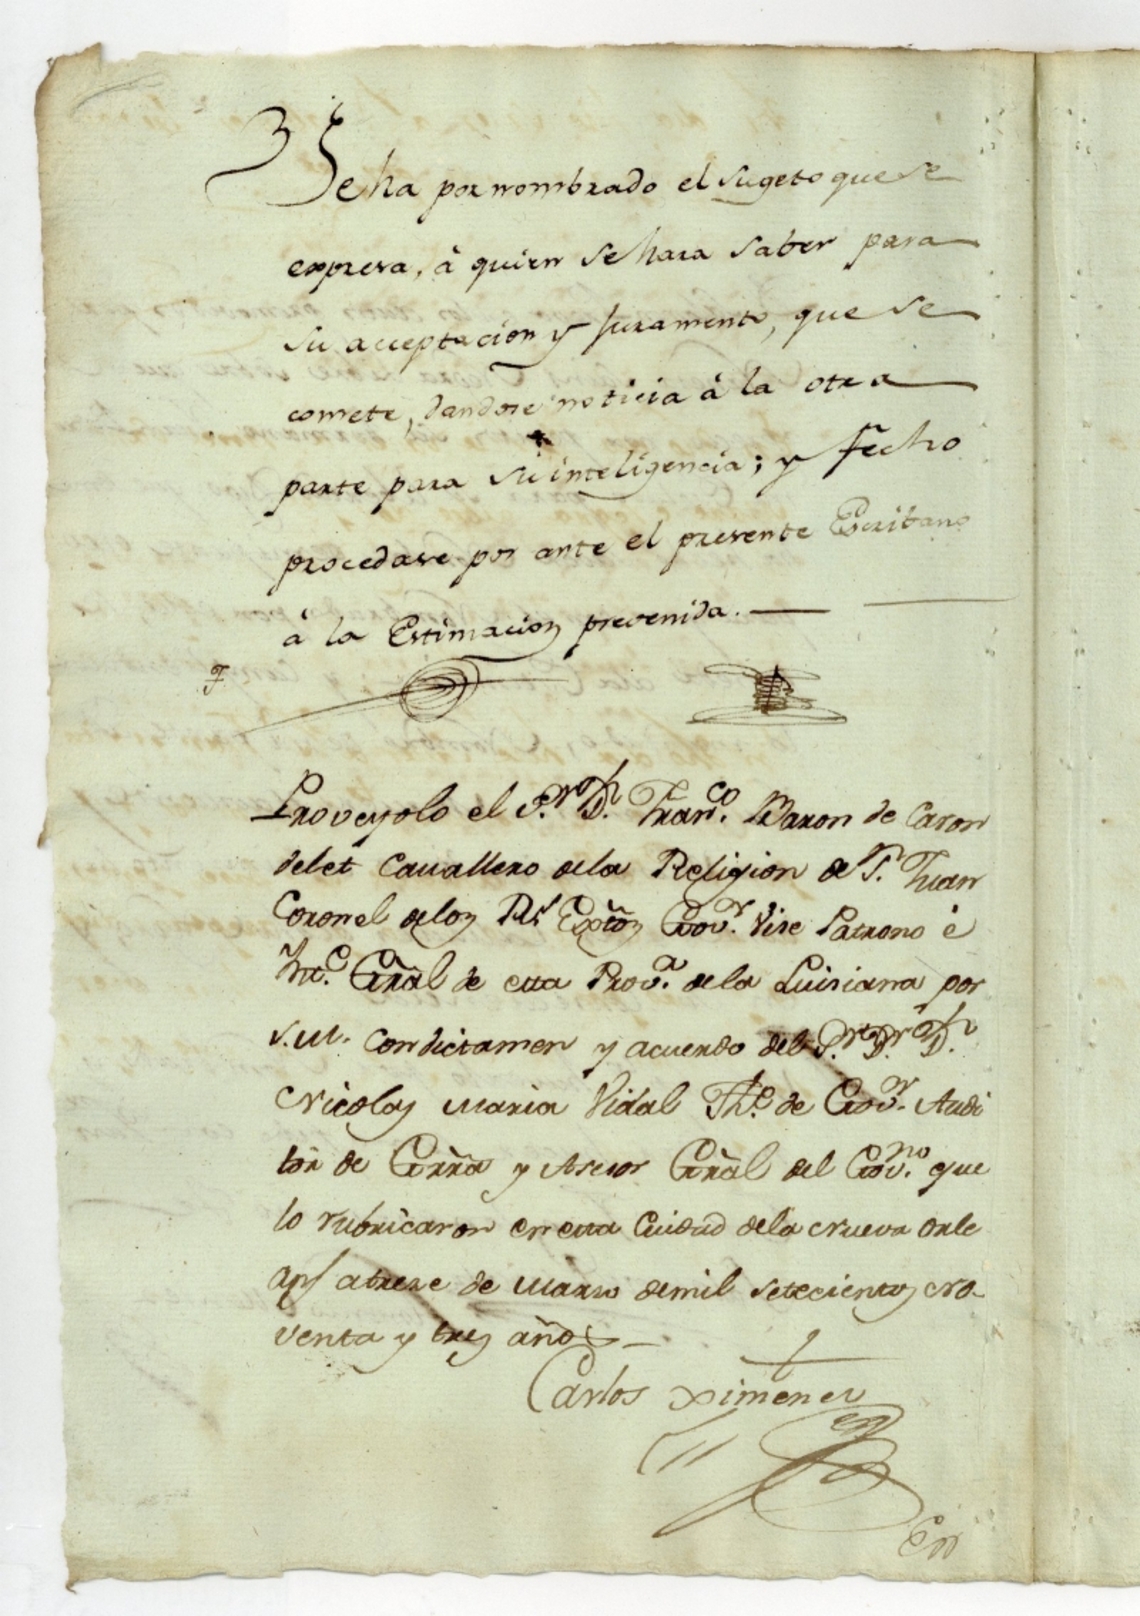 Se ha por nombrado el sugeto que se
expresa, à quien se hara saber para
su acceptacion y juramento, que se
comete, dandose noticia à la otra
parte para su inteligencia; y fecho
procedase por ante el presente Escribano
à la Estimacion prevenida.
F.
Proveyolo el S.or D.n Fran.co Baron de Caron
delet Cavallero de la Religion de S.n Juan
Coronel de los R.s Exto͠s Gov.r Vice Patrono è
Int.e Gra͠l de esta Prov.a de la Luisiana por
S.M. con dictamen y acuerdo del S.or D.r D.n
Nicolas Maria Vidal The.e de Gov.r Audi
tor de Grra͠ y Asesor Gra͠l del Gov.no que
lo rubricaron en esta Ciudad de la Nueva Orle
ans a treze de Marzo de mil setecientos no-
venta y tres años
Carlos Ximenez
En